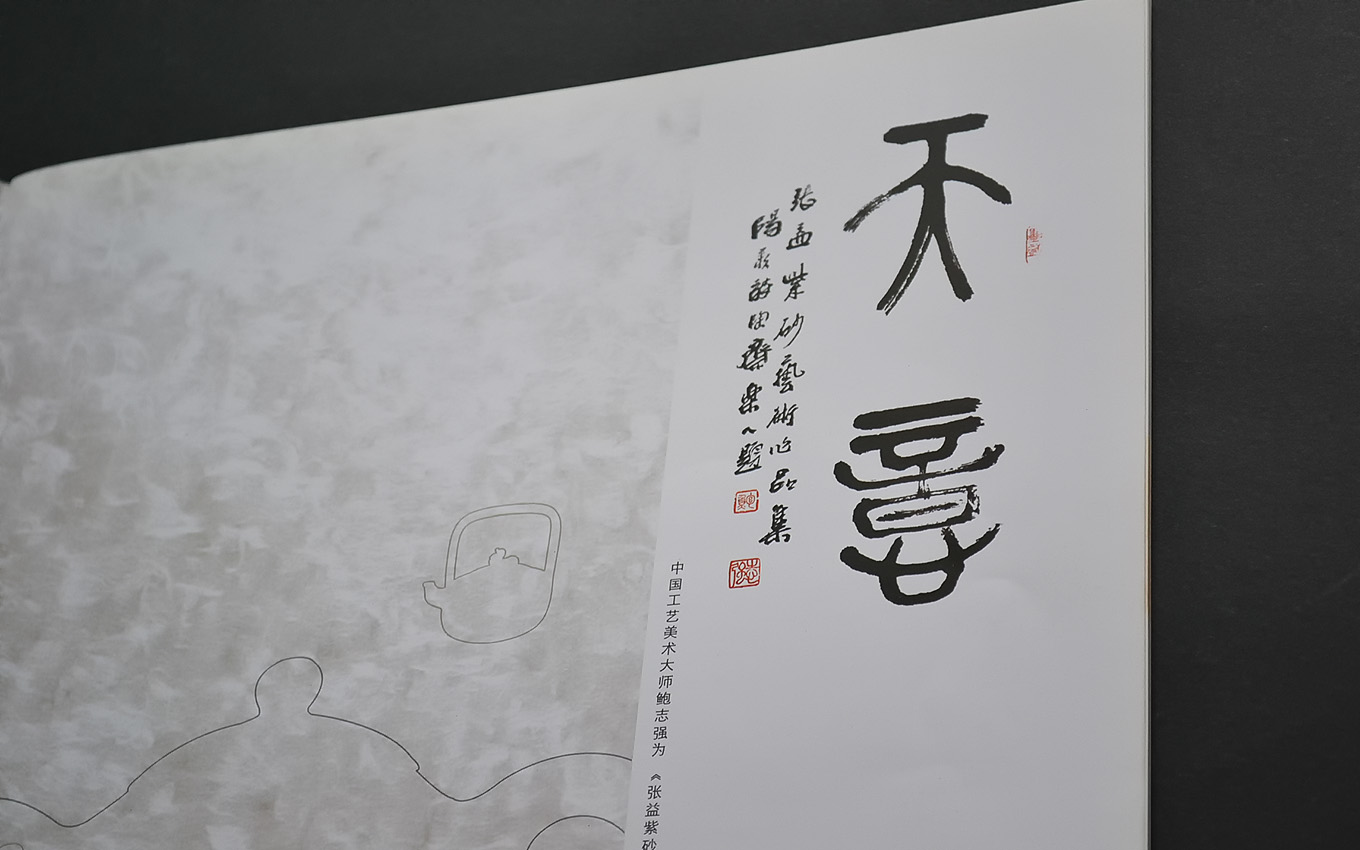 天意
张益紫砂藝術作品集
陽羨陶齋樂人題
中国工艺美术大师鲍志强为《张益紫砂